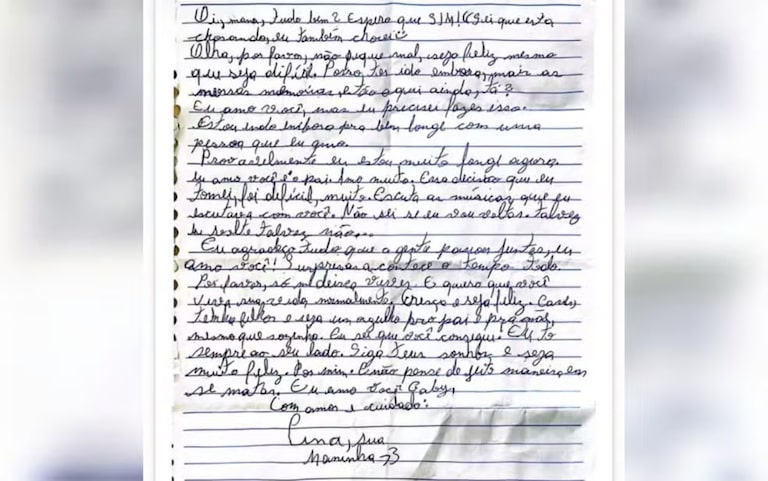 Oi, mana, tudo bem? Espero que SIM! (Sei que esta
chorando, eu também chorei
Olha, por favor, não fique mal, seja feliz mesmo
que seja difícil. Posso ter ido embora, mais as
nossas memórias estão aqui ainda, tá?
Eu amo você, mas eu precisei fazer isso.
Estou indo embora pra bem longe com uma
pessoa que eu amo.
Provavelmente eu estou muito longe agora.
Eu amo você e o pai. Amo muito. Essa decisão que eu
tomei, foi difícil, muito. Escuta as músicas que eu
escutava com você. Não sei se eu vou voltar. talvez
eu volte talvez não...
Eu agradeço tudo que a gente passou juntas, eu
amo você! Surpresas acontece o tempo todo.
Por favor, só me deixa viver. E quero que você
viva sua vida normalmente, cresça e seja feliz. Case,
tenha filhos e seja um orgulho pro pai e pra mãe,
mesmo que sozinha. Eu sei que você consegue. Eu to
sempre ao seu lado. Siga teus sonhos e seja
muito feliz. Por mim. E não pense de jeito maneira em
se matar. Eu amo você Gaby,
Com amor e cuidado:
sua
Maninha <3